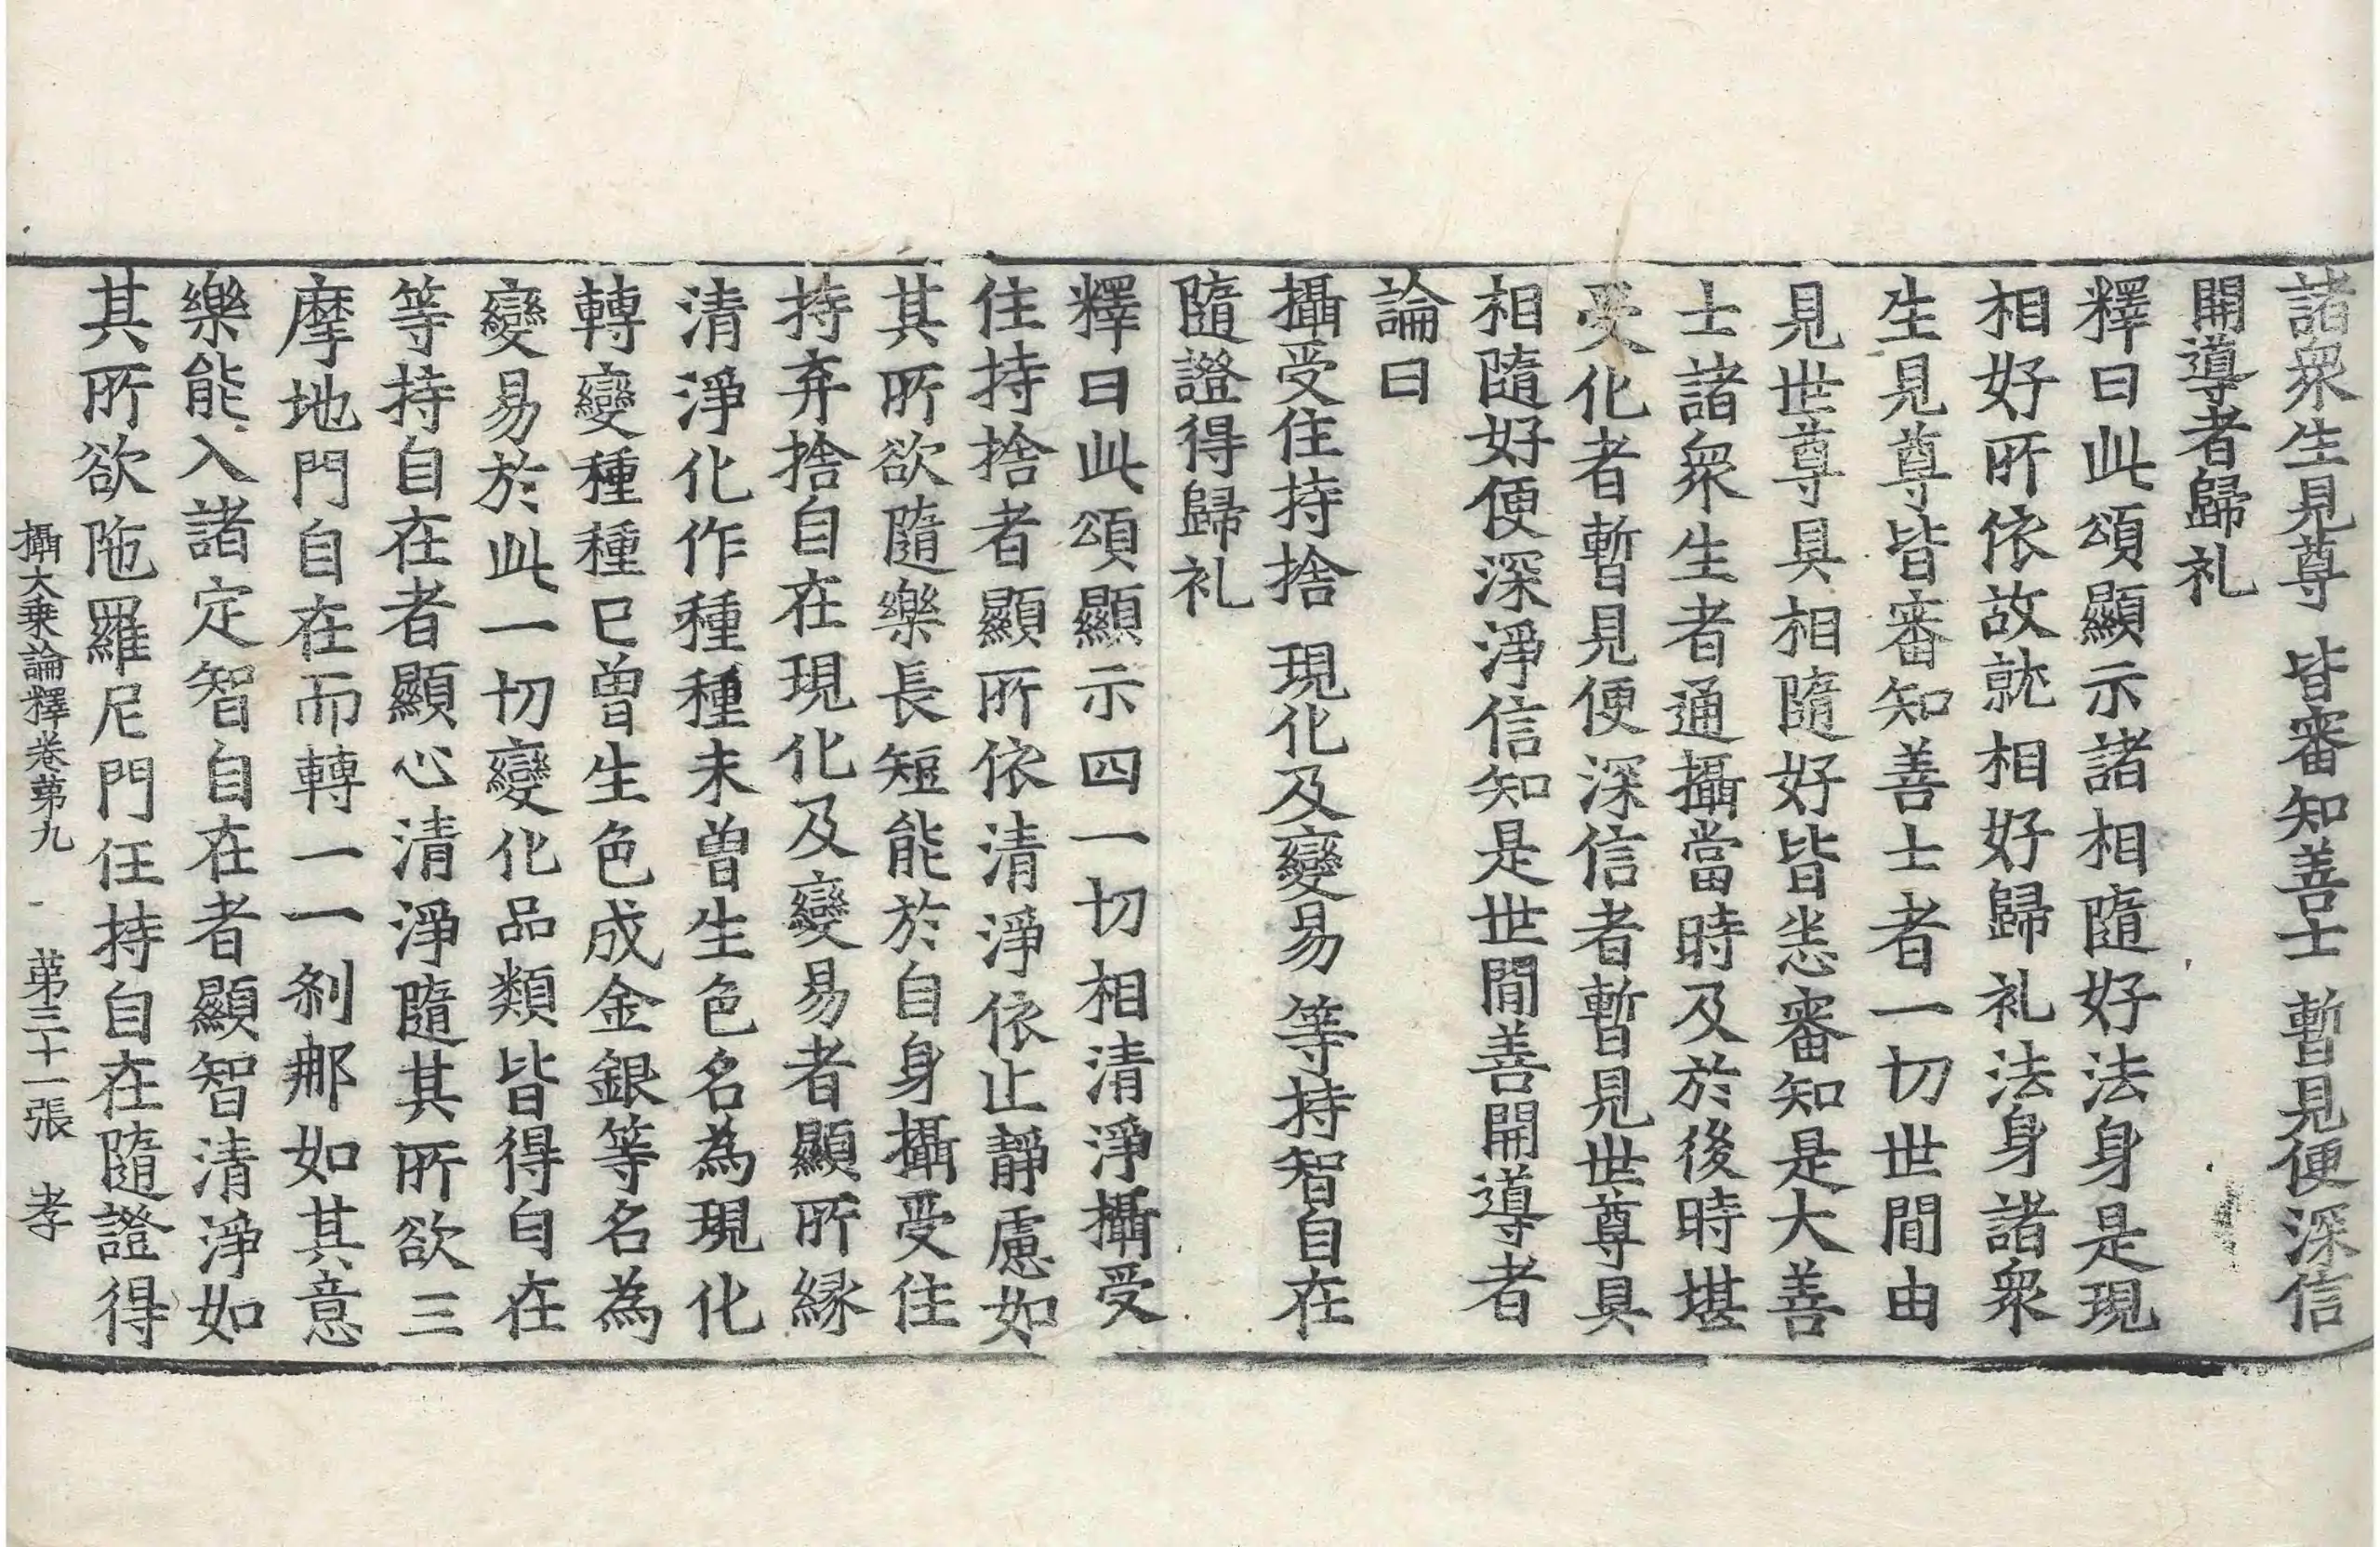 諸衆生見尊 皆審知善士 暫見便深信
開導者歸礼
釋曰此頌顯示諸相隨好法身是現
相好所依故就相好歸礼法身諸衆
生見尊皆審知善士者一切世間由
見世尊具相隨好皆悉審知是大善
士諸衆生者通攝當時及於後時堪
受化者暫見便深信者暫見世尊具
相隨好便深淨信知是世間善開導者
論曰
攝受住持捨 現化及變易 等持智自在
隨證得歸礼
釋曰此頌顯示四一切相清淨攝受
住持捨者顯所依清淨依止靜慮如
其所欲隨樂長短能於自身攝受住
持弃捨自在現化及變易者顯所縁
清淨化作種種未曾生色名為現化
轉變種種已曾生色成金銀等名為
變易於此一切變化品類皆得自在
等持自在者顯心清淨隨其所欲三
摩地門自在而轉一一刹那如其意
樂能入諸定智自在者顯智清淨如
其所欲陁羅尼門任持自在隨證得
攝大乗論釋卷苐九 苐三十一張 孝